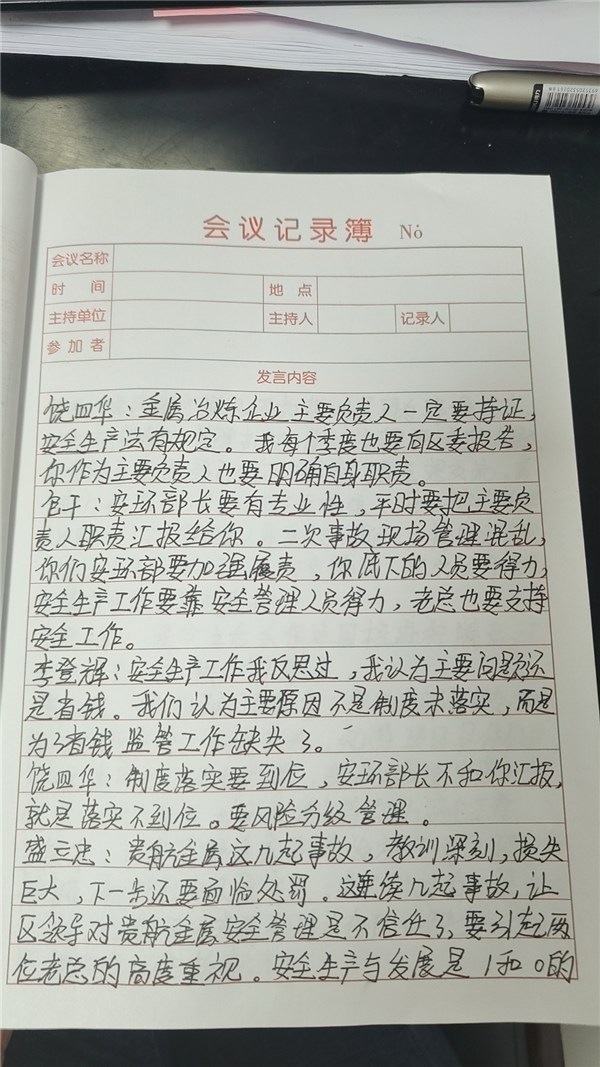 会议记录簿 No
会议名称
时 间 地 点
主持单位 主持人 记录人
参加者
发言内容
饶四华：金属冶炼企业主要负责人一定要持证，
安全生产法有规定。我每个季度也要向区委报告，
你作为主要负责人也要明确自身职责。
包干：安环部长要有专业性，平时要把主要负
责人职责汇报给你。二次事故现场管理混乱，
你们安环部要加强履责，你底下的人员要得力，
安全生产工作要靠安全管理人员得力，老总也要支持
安全工作。
李登辉：安全生产工作我反思过，我认为主要问题还
是省钱。我们认为主要原因不是制度未落实，而是
为了省钱监管工作缺失了。
饶四华：制度落实要到位，安环部长不和你汇报，
就是落实不到位。要风险分级管理。
盛立忠：贵航金属这几起事故，教训深刻，损失
巨大，下一步还要面临处罚。这连续几起事故，让
区领导对贵航金属安全管理是不信任了，要引起两
位老总的高度重视。安全生产与发展是1和0的